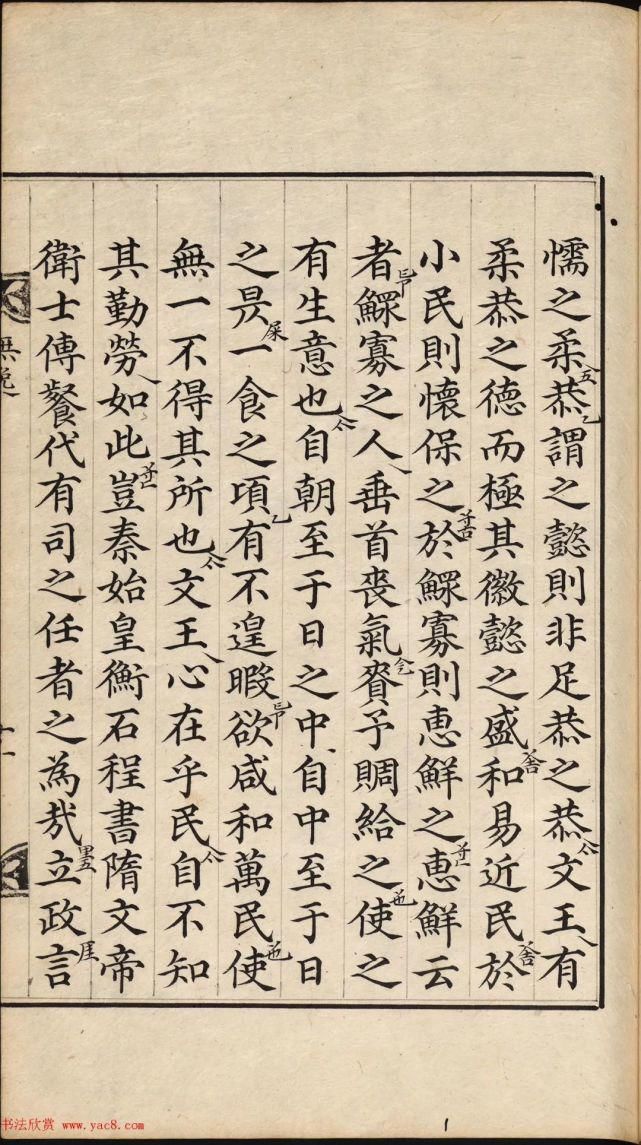 懦之柔恭謂之懿則非足恭之恭文王有
柔恭之德而極其徽懿之盛和易近民於
小民則懷保之於鰥寡則惠鮮之惠鮮云
者鰥寡之人垂首喪氣賚予賙給之使之
有生意也自朝至于日之中自中至于日
之昃一食之頃有不遑暇欲咸和萬民使
無一不得其所也文王心在乎民自不知
其勤勞如此豈秦始皇衡石程書隋文帝
衛士傳餐代有司之任者之為哉立政言
無逸
十一
书法欣赏 www.yac8.com
1